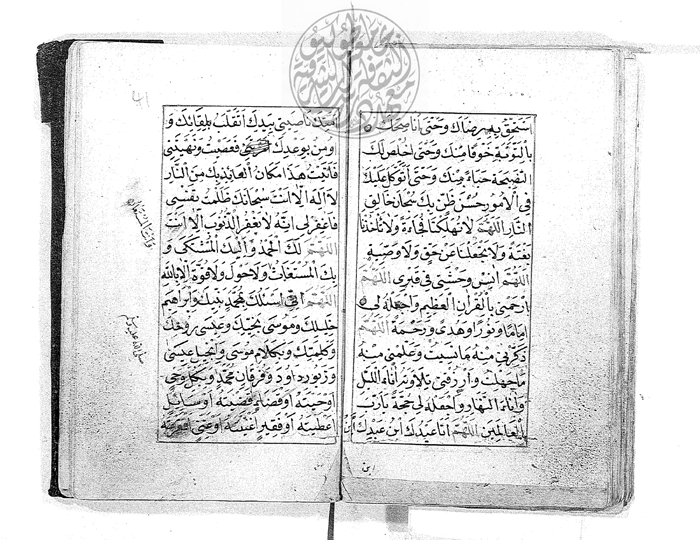 استحق به رضاك وحتى اناصحك
بالتوبة خوفا منك وحتى اخلص لك
النصيحة حباء منك وحتى اتوكل عليك
في الامور حسن ظن بك سبحان خالق
النار اللهم لا تهلكنا فجاءة ولا تاخذنا
بغتة ولا تجعلنا عن حق ولا وصية
اللهم انس وحشتي في قبري اللهم
ارحمني بالقران العظيم واجعله لي
اماما ونورا وهدى ورحمة اللهم
ذكرني منه ما نسيت وعلمني منه
ما جهلت وارزقني تلاوته اناء الليل
واناء النهار واجعله لي حجة يا رب
العالمين اللهم انا عبدك ابن عبدك ابن
ابن
امتك ناصيتي بيدك اتقلب بلقائك و
اومن بوعدك فعصيت ونهيتني
فاتيت هذا مكان العايذ بك من النار
لا اله الا انت سبحانك ظلمت نفسي
فاغفر لي انه لا يغفر الذنوب الا انت
اللهم لك الحمد واليك المشتكى و
بك المستغاث ولا حول ولا قوة الا بالله
اللهم اني اسئلك بمحمد نبيك وابراهيم
خليلك وموسى نجيك وعيسى روحك
وكلمتك وبكلام موسى وانجيل عيسى
وزبور داود وفرقان محمد وبكل وحي
اوحيته او قضاء قضيته او سائل
اعطيته او فقير اغنيته او غني افقرته
صلى الله عليه وسلم
41